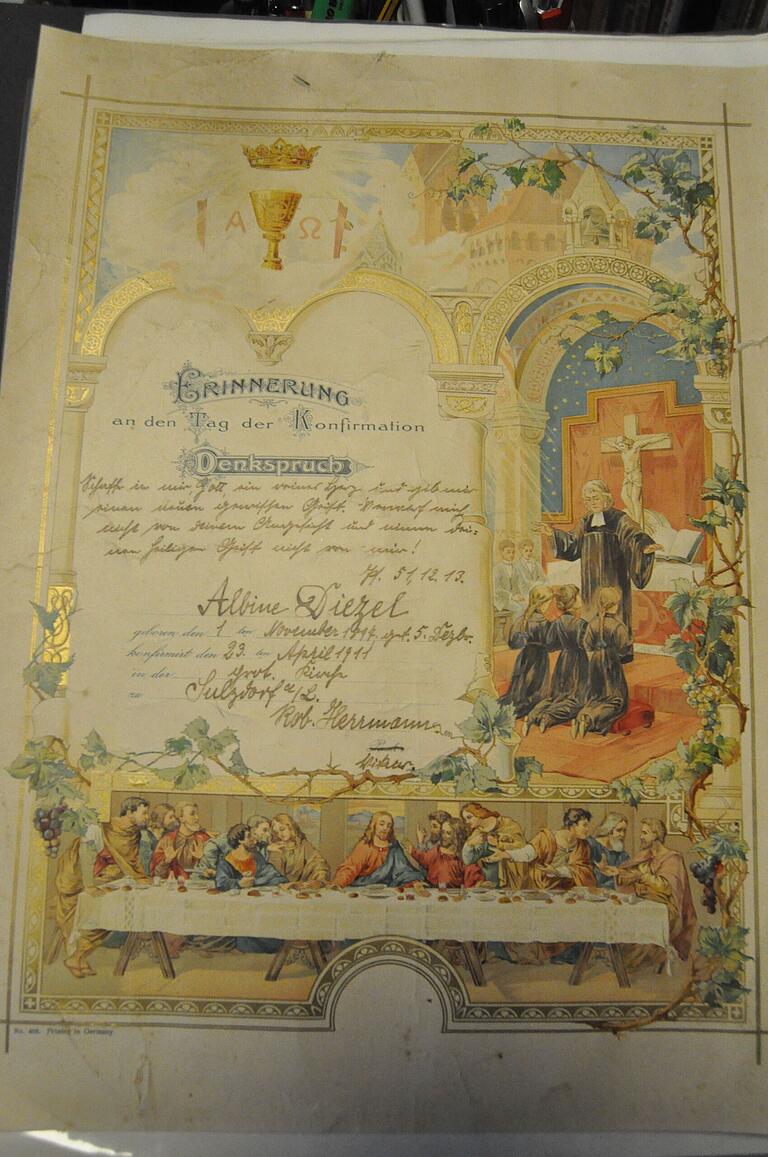 Α Ω
ERINNERUNG
an den Tag der Konfirmation
Denkspruch
Schaffe in mir, Gott, ein reines Herz und gib mir
einen neuen gewissen Geist. Verwirf mich
nicht von deinem Angesicht und nimm dei-
nen heiligen Geist nicht von mir!
Ps. 51, 12. 13.
Albine Diezel
geboren den 1 ten November get. 5. Dezbr.
konfirmirt den 23. ten April 1911
in der prot. Kirche
zu Sulzdorf a/L.
Rob. Herrmann
No. Printed in Germany